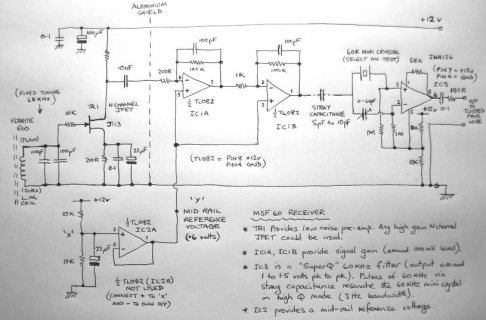 ALUMINIUM
SHIELD
+12V
0.1
100µF
100pF
100pF
10nF
200R
100K
1K
100K
60K MINI CRYSTAL
(SELECT ON TEST)
INA126
(PIN7 = +12V
PIN4 = GND)
68K
IC3
(FIXED TUNING
60KHz)
TR1
N CHANNEL
JFET
J113
FERRITE
ROD
10K
½ TL082
IC1A
½ TL082
IC1B
STRAY
CAPACITANCE
5pF to 10pF
1M
1M
+12V
10K
10K
O/P
TWISTED
PAIR
WIRE
(TL082 = PIN8 +12V
PIN4 GND)
100pF
200R
0.1
22µF
(BLACK)
L.W.
COIL
+12V
10K
'X'
10K
22µF
½ TL082
IC2A
'Y'
MID RAIL
REFERENCE
VOLTAGE
(+6 volts)
½ TL082 (IC2B)
NOT USED
(CONNECT + TO 'X'
AND - TO OWN O/P)
MSF 60 RECEIVER
* TR1 Provides low noise pre-amp. Any high gain N channel
JFET could be used.
* IC1A, IC1B provide signal gain (around 100mV level).
* IC3 is a "SuperQ" 60KHz filter (output around
1 to 1.5 volts pk to pk). Pulses of 60KHz via
stray capacitance resonate the 60KHz mini crystal
in high Q mode (3Hz bandwidth).
* IC2 provides a mid-rail reference voltage.